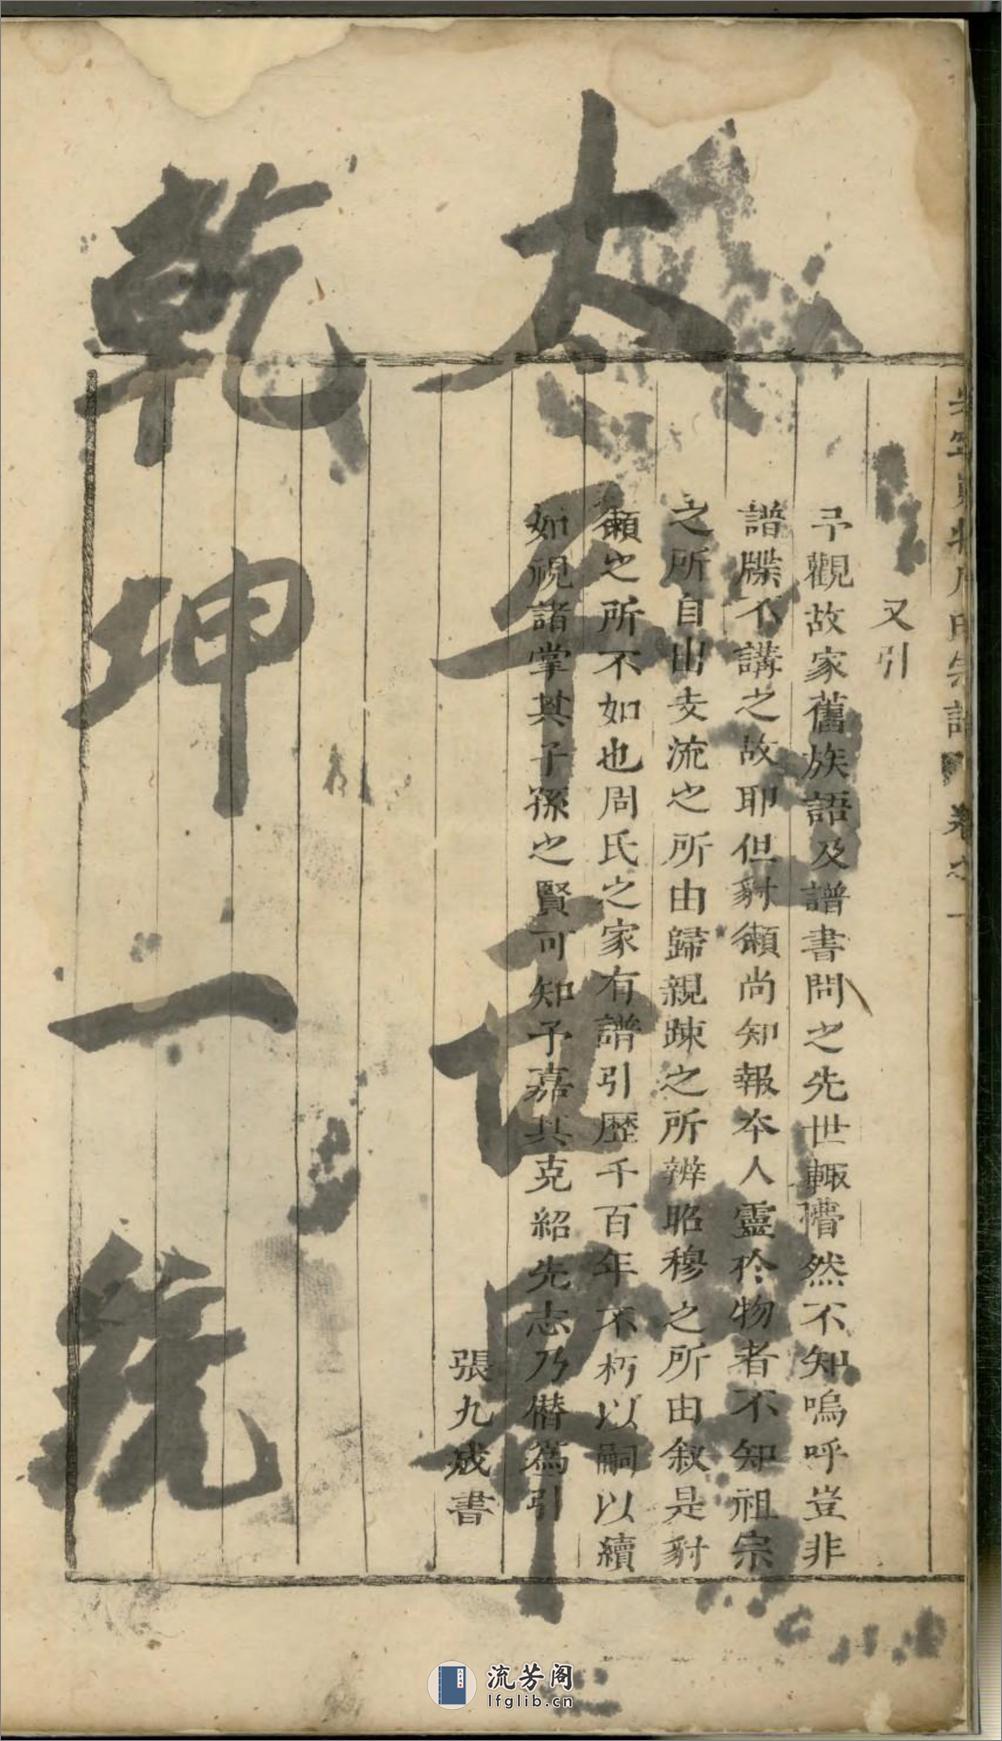 又引
予觀故家舊族語及譜書問之先世輙懵然不知嗚呼豈非
譜牒不講之故耶但豺獺尚知報夲人靈於物者不知祖宗
之所自出支流之所由歸親踈之所辨昭穆之所由叙是豺
獺之所不如也周氏之家有譜引歷千百年不朽以嗣以續
如視諸掌其子孫之賢可知予嘉其克紹先志乃僣爲引
張九成書
太平世界
乾坤一統
流芳阁
lfglib.cn